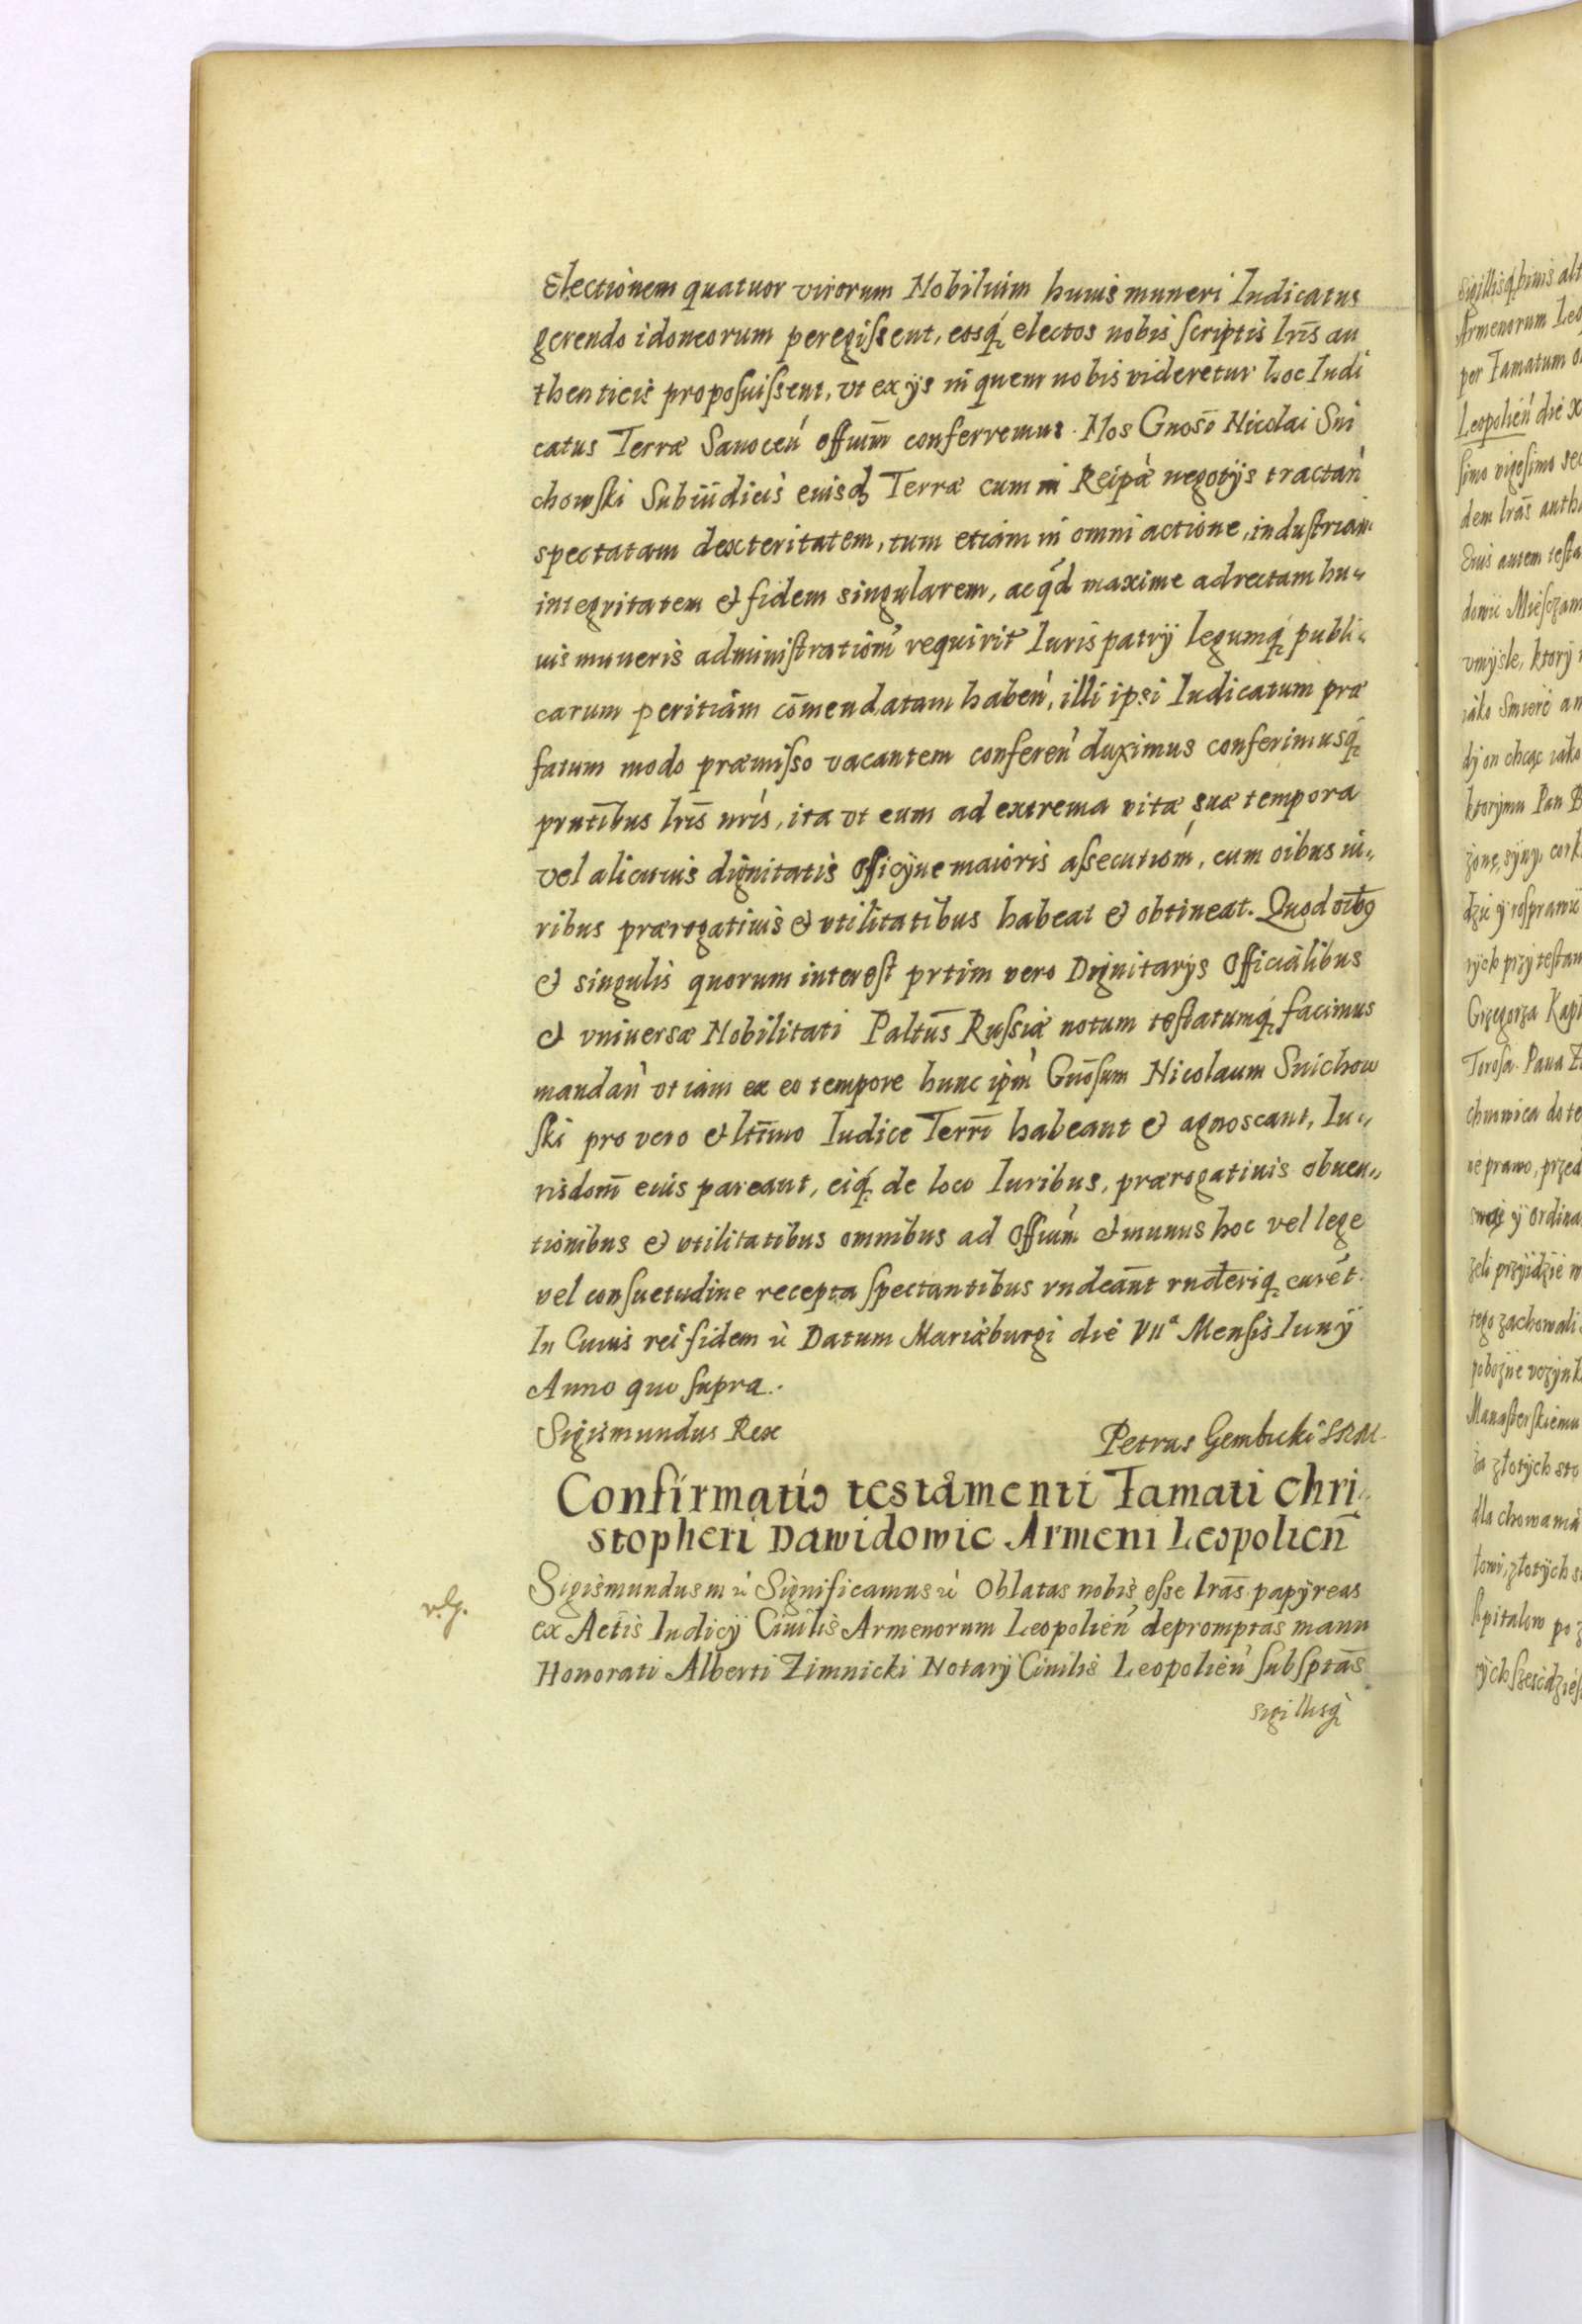 Electionem quatuor virorum Nobilium huius muneri Iudicatus
gerendo idoneorum peregiſsent, eosq́ electos nobis ſcriptis lrīs au
thenticis propoſuiſsent, vt ex ijs in quem nobis videretur hoc Iudi
catus Terræ Sanoceń offium̄ conferremus. Nos Gnosō Nicolai Sni
chowſki Subiudicis eiusdꝫ Terræ cum in Reipà negotÿs tractań
spectatam dexteritatem, tum etiam in omni actione, induſtriam
integritatem & fidem singularem, ac qd́ maxime ad rectam hu„
uis muneris adminiſtratiom̄ requirit Iuris patrÿ legumq́ publi„
carum peritiam com̄endatam habeń, illi ipsi Iudicatum præ
fatum modo præmiſso vacantem conferen̄ duximus conferimusq́
prntībus lrīs nrīs, ita vt eum ad extrema vitæ suæ tempora
vel alicuius dignitatis Officÿue maioris aſsecutiom̄, cum oibus iu„
ribus prærogatiuis & vtilitatibus habeat & obtineat. Quod oībꝰ
& singulis quorum intereſt prtim vero Dignitarÿs Officialibus
& vniversæ Nobilitati Paltūs Ruſsiæ notum teſtatumq́ facimus
mandań vt iam ex eo tempore hunc ipm̄ Gnōsum Nicolaum Snichow
ſki pro vero & ltīmo Iudice Terrī habeant & agnoscant, Iu„
risdom̄ eius pareant, eiq́ de loco Iuribus, prærogatiuis obuen„
tionibus & vtilitatibus omnibus ad Offium̄ & munus hoc vel lege
vel conſuetudine recepta ſpectantibus rndeānt rndēriq́ curēt.
In Cuius rei fidem ꝛc̀ Datum Mariæburgi die VIIª Menſis Iunÿ
Anno quo ſupra.
Sigismundus Rex
Petrus Gembicki SRM.
Confirmatio testamenti Famati Chri„
stopheri Dawidowic Armeni Leopolien̄
v. G.
Sigismundus III ꝛc̀ Significamus ꝛc̀ Oblatas nobis eſse lrās papÿreas
ex Actis Iudicÿ Ciuilis Armenorum Leopolień depromptas manu
Honorati Alberti Zimnicki Notarÿ Ciuilis Leopolień ſubſptās
sigillisq́